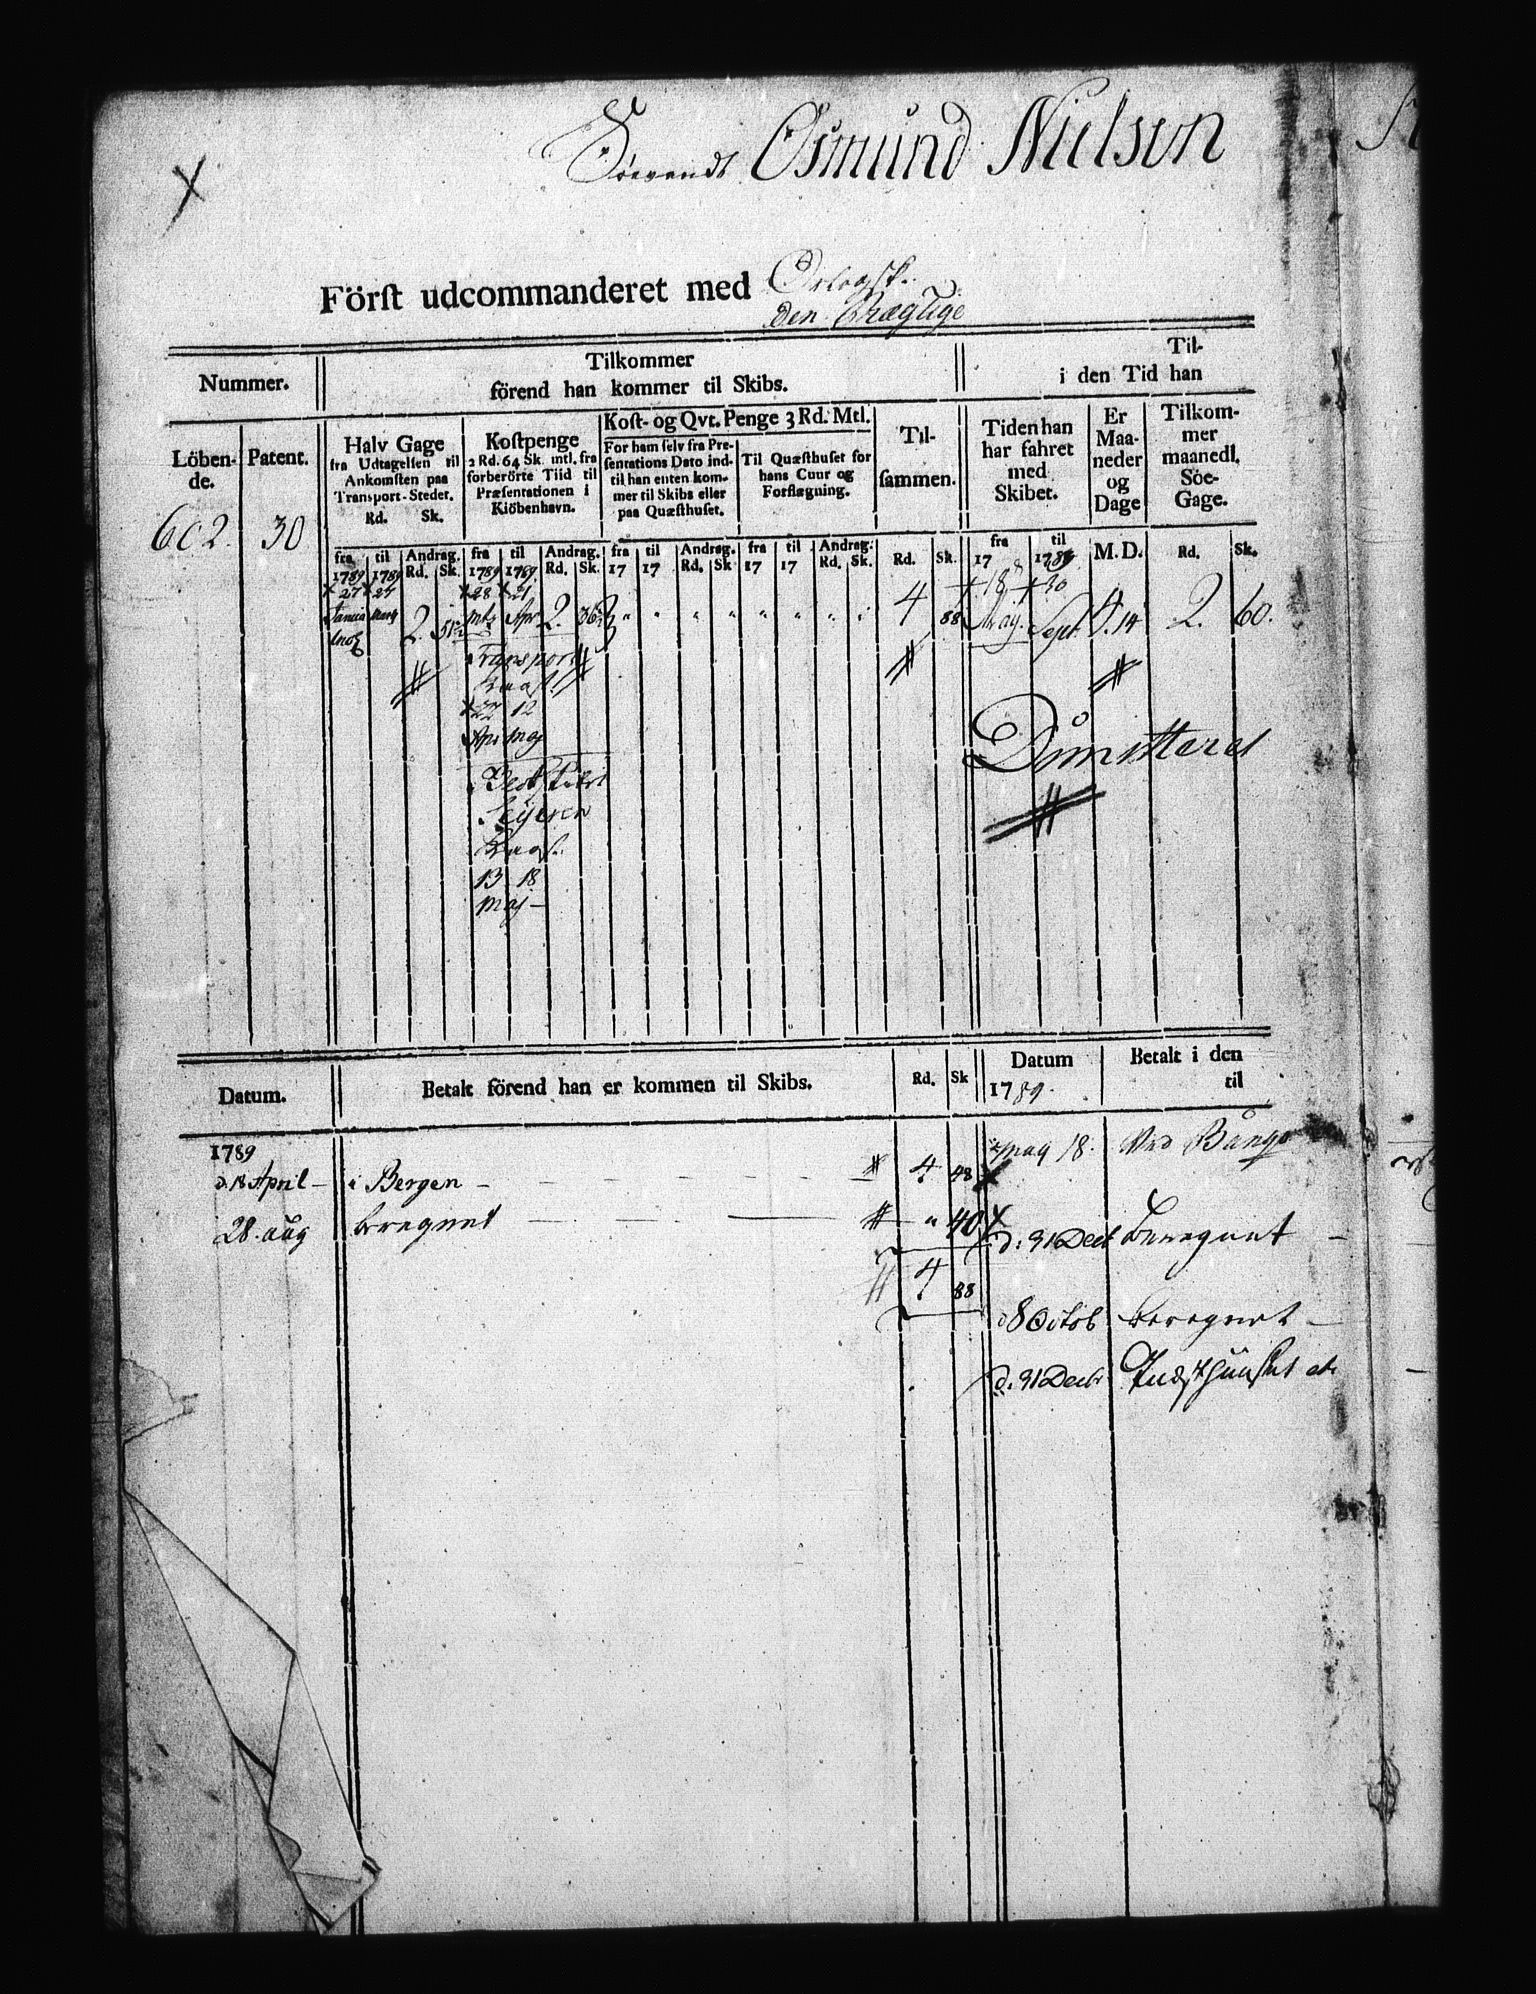 Osmund Nielsen
Först udcommanderet med Orlogsk:
den Prægtige
Nummer.
Tilkommer
förend han kommer til Skibs.
Til-
i den Tid han
Löben-
de.
Patent.
Halv Gage
fra Udtagelsen til
Ankomsten paa
Transport-Steder.
Rd. Sk.
Kostpenge
2 Rd. 64 Sk. mtl. fra
forberörte Tiid til
Præsentationen i
Kiöbenhavn.
Kost- og Qvt. Penge 3 Rd. Mtl.
For ham selv fra Pre-
sentations Dato ind-
til han enten kom-
mer til Skibs eller
paa Quæsthuset.
Til Quæsthuset for
hans Cuur og
Forflægning.
Til-
sammen.
Tiden han
har fahret
med
Skibet.
Er
Maa-
neder
og
Dage
Tilkom-
mer
maanedl.
Söe-
Gage.
602. 30
fra til Andrag. fra til Andrag. fra til Andrag. fra til Andrag. fra til
1789 1789 Rd. Sk. 1789 1789. Rd. Sk. 17 17 Rd. Sk 17 17 Rd. Sk. Rd. Sk. 17 1789 M. D. Rd. Sk.
27 27 28 21 18 30
Martz Mtz Apr. 2. 2. 4 88 May. Sept. 4. 14 2. 60.
Transport
22 12
Apr Maj
Dimitteret
Seyeren
13 18
Maj
Datum. Betalt förend han er kommen til Skibs. Rd. Sk Datum Betalt i den
1789. til
1789
d. 18 April i Bergen 4 48
May 18. Ved
28. aug beregnet " 40
d: 31 Dec beregnet
4 88
d 8 Octob beregnet
d. 31 Decbr Quæsthuuset